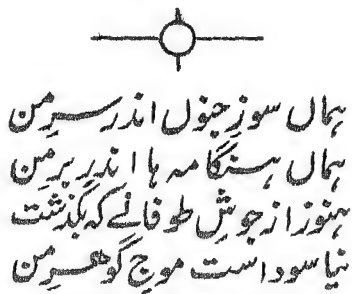 ہماں سوزِ جنوں اندر سرِ من
ہماں ہنگامہ ہا اندر برِ من
ہنوز از جوشِ طوفانے کہ بگذشت
نیاسود است موجِ گوھرِ من